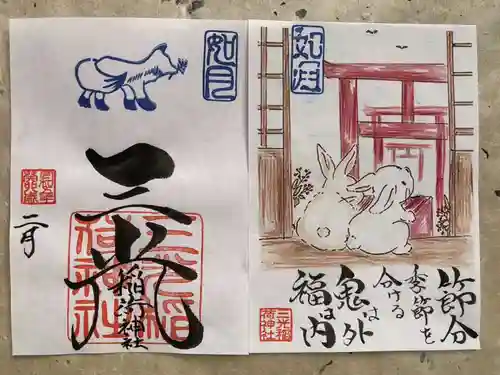 如月
三光
稲荷神社
三光稲荷神社
二月
如月
節分
季節を
分ける
鬼は外
福は内
三光稲荷神社